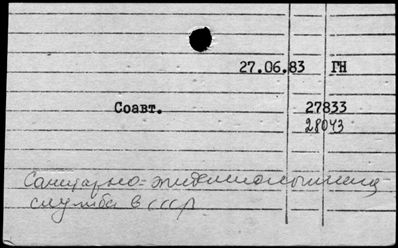 27.06.83 ГН
Соавт. 27833
28043
Санитарно-эпидемиологическая
служба в СССР